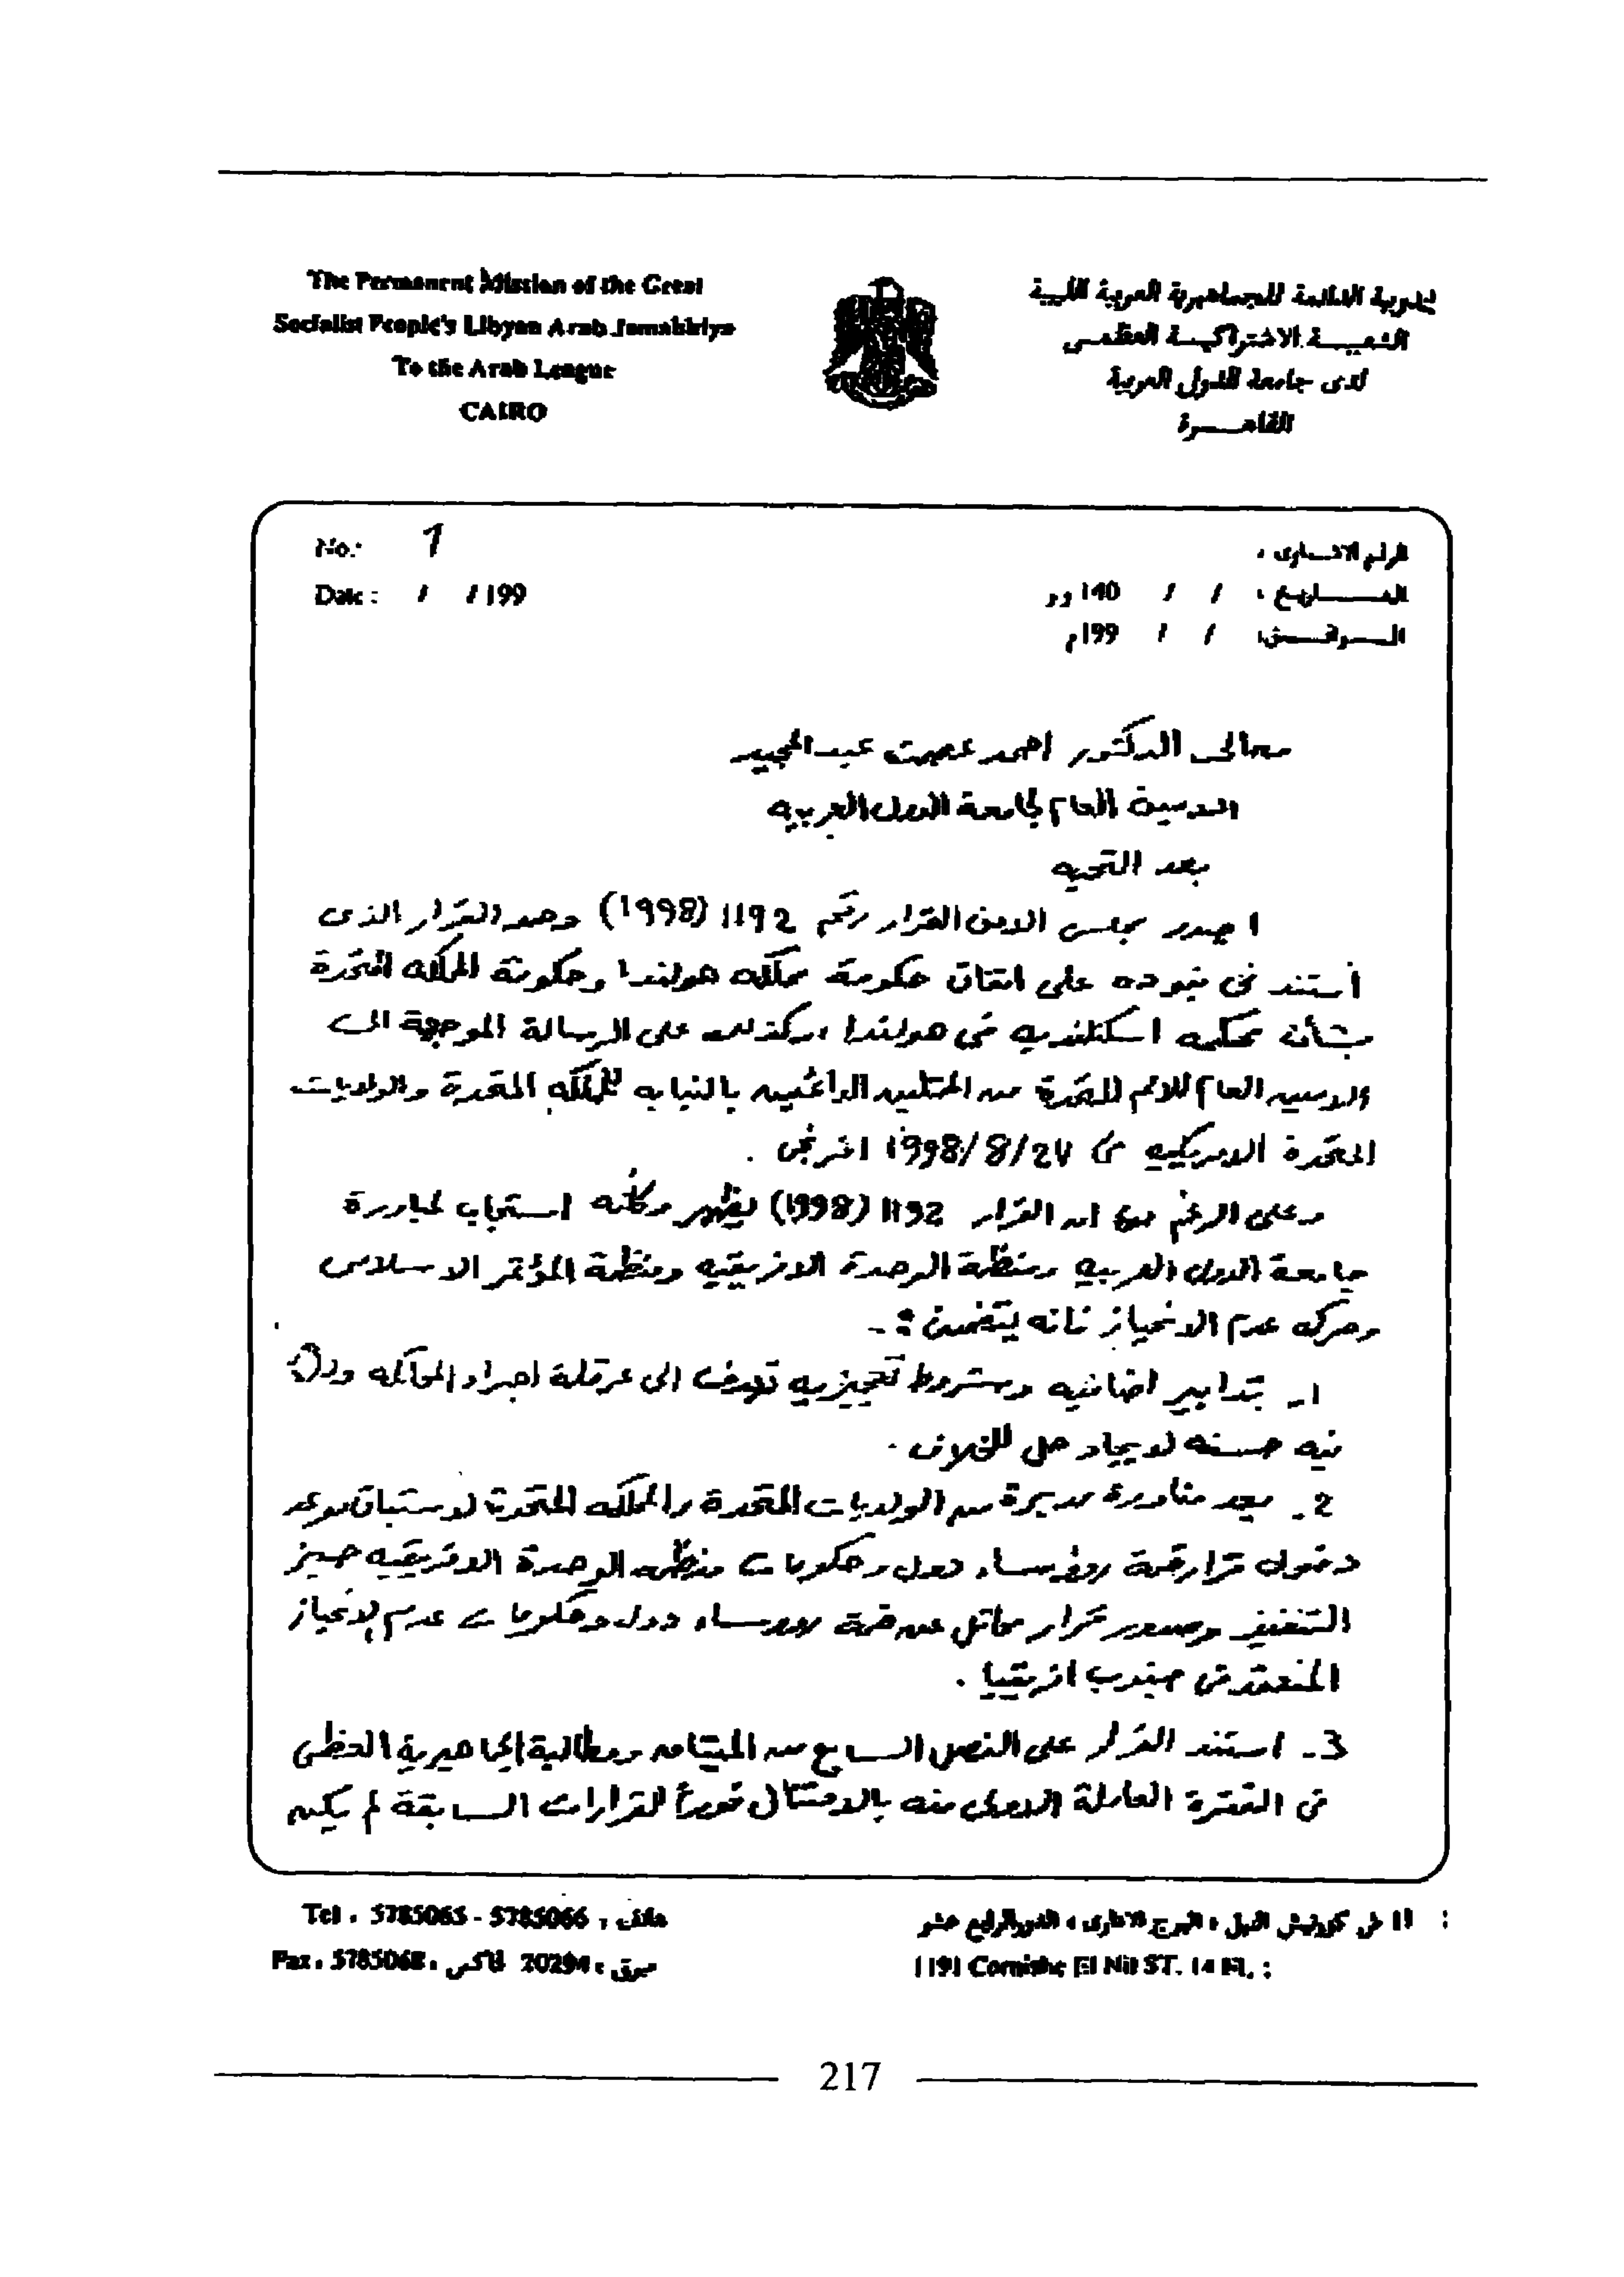 The Permanent Mission of the Great
Socialist People's Libyan Arab Jamahiriya
To the Arab League
CAIRO
المندوبية الدائمة للجماهيرية العربية الليبية
الشعبيــة الاشتراكيــة العظمــى
لدى جامعة الدول العربية
القاهــرة
No.: 1
Date : / / 199
الرقم الاشــارى :
التــــاريخ : / / 140 و.ر
المـــوافـــق: / / 199م
معالى الدكتور احمد عصمت عبدالمجيد
الامين العام لجامعة الدول العربيه
بعد التحيه
اصدر مجلس الامن القرار رقم 1192 (1998) وهو القرار الذى
أستند فى بنوده على اتفاق حكومة مملكه هولندا وحكومة المملكه المتحدة
بشأن محكمه اسكتلنديه فى هولندا ، وكذلك على الرسالة الموجهة الى
الامين العام للامم المتحدة من الممثلين الدائمين بالنيابه للمملكه المتحدة والولايات
المتحدة الامريكيه فى 24/8/1998 افرنجى .
وعلى الرغم من ان القرار 1192 (1998) يظهر وكأنه استجاب لمبادرة
جامعة الدول العربيه ومنظمة الوحدة الافريقيه ومنظمة المؤتمر الاسلامى
وحركه عدم الانحياز فانه يتضمن :-
1- تدابير اضافيه وشروط تعجيزيه تهدف الى عرقلة اجراء المحاكمه ولا
نيه حسنه لايجاد حل للخلاف .
2- يعد مناورة مدبرة من الولايات المتحدة والمملكه المتحدة لاستباق موعد
دخول قرار قمة رؤساء دول وحكومات منظمه الوحدة الافريقيه حيز
التنفيذ وصدور قرار مماثل عن قمة رؤوساء دول وحكومات عدم الانحياز
المنعقد فى جنوب افريقيا .
3- استند القرار على الفصل السابع من الميثاق ومطالبة الجماهيرية العظمى
فى الفقرة العاملة الاولى منه بالامتثال فوراً للقرارات السابقة لم يكن
Tel . 5785065 - 5785066 , هاتف
Fax . 5785068 . فاكس 20294 : مبرق
: 1191 ش كورنيش النيل ، البرج الادارى ، الدور الرابع عشر
1191 Cornishe El Nil ST. 14 Fl. :
217